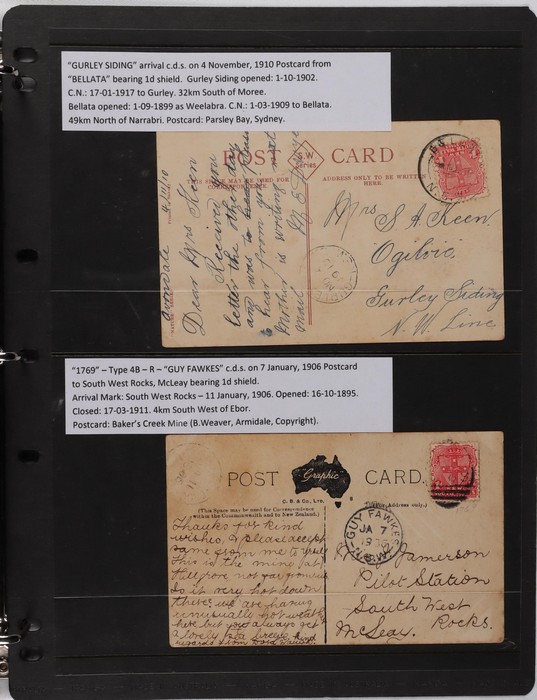 "GURLEY SIDING" arrival c.d.s. on 4 November, 1910 Postcard from
"BELLATA" bearing 1d shield. Gurley Siding opened: 1-10-1902.
C.N.: 17-01-1917 to Gurley. 32km South of Moree.
Bellata opened: 1-09-1899 as Weelabra. C.N.: 1-03-1909 to Bellata.
49km North of Narrabri. Postcard: Parsley Bay, Sydney.
POST CARD
THIS SPACE MAY BE USED FOR
CORRESPONDENCE.
ADDRESS ONLY TO BE WRITTEN
HERE.
Avondale 4/11/10
Dear Mrs Keen
Received your
letter the other day
and was to
hear from you
Mother is writing next
mail
Mrs S. A. Keen.
Ogilvie.
Gurley Siding
N.W. Line
"1769" – Type 4B – R – "GUY FAWKES" c.d.s. on 7 January, 1906 Postcard
to South West Rocks, McLeay bearing 1d shield.
Arrival Mark: South West Rocks – 11 January, 1906. Opened: 16-10-1895.
Closed: 17-03-1911. 4km South West of Ebor.
Postcard: Baker's Creek Mine (B.Weaver, Armidale, Copyright).
POST Graphic CARD.
(This Space may be used for Correspondence
within the Commonwealth and to New Zealand.)
Address only.)
GUY FAWKES
JA 7
N.S.W.
Thanks for kind
wishes, & please accept
same from me to
This is the mine (at)
Hillgrove not
So it very hot down
there we are having
unusually hot
here but you always get
a lovely sea breeze kind
regards from
Jamerson
Pilot Station
South West
Rocks.
McLeay.